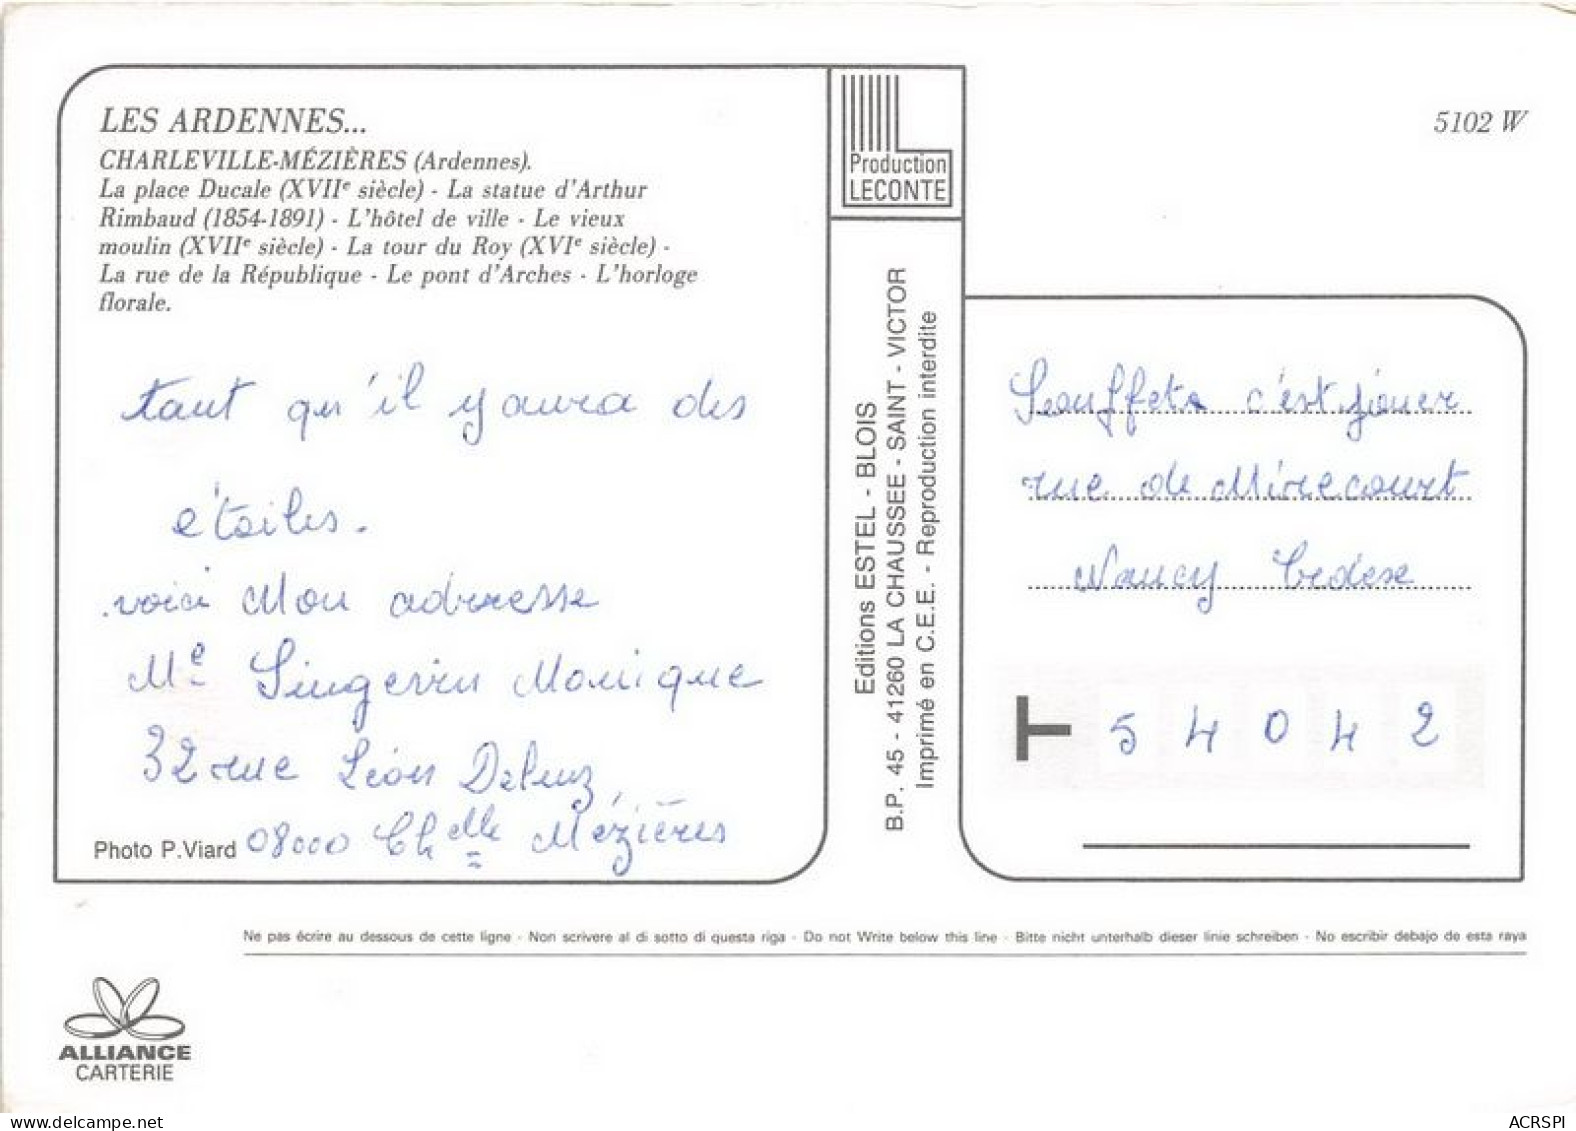 LES ARDENNES...
CHARLEVILLE-MÉZIÈRES (Ardennes).
La place Ducale (XVIIe siècle) - La statue d'Arthur
Rimbaud (1854-1891) - L'hôtel de ville - Le vieux
moulin (XVIIe siècle) - La tour du Roy (XVIe siècle) -
La rue de la République - Le pont d'Arches - L'horloge
florale.
tant qu'il y aura des
étoiles.
voici Mon adresse
Me Monique
32 rue Léon
Photo P.Viard
08000 Chelle Mézières
Production
LECONTE
Editions ESTEL - BLOIS
B.P. 45 - 41260 LA CHAUSSEE - SAINT - VICTOR
Imprimé en C.E.E. - Reproduction interdite
5102 W
c'est jouer
rue de Mirecourt
Nancy Cedex
54042
Ne pas écrire au dessous de cette ligne - Non scrivere al di sotto di questa riga - Do not Write below this line - Bitte nicht unterhalb dieser linie schreiben - No escribir debajo de esta raya
ALLIANCE
CARTERIE
www.delcampe.net
ACRSPI